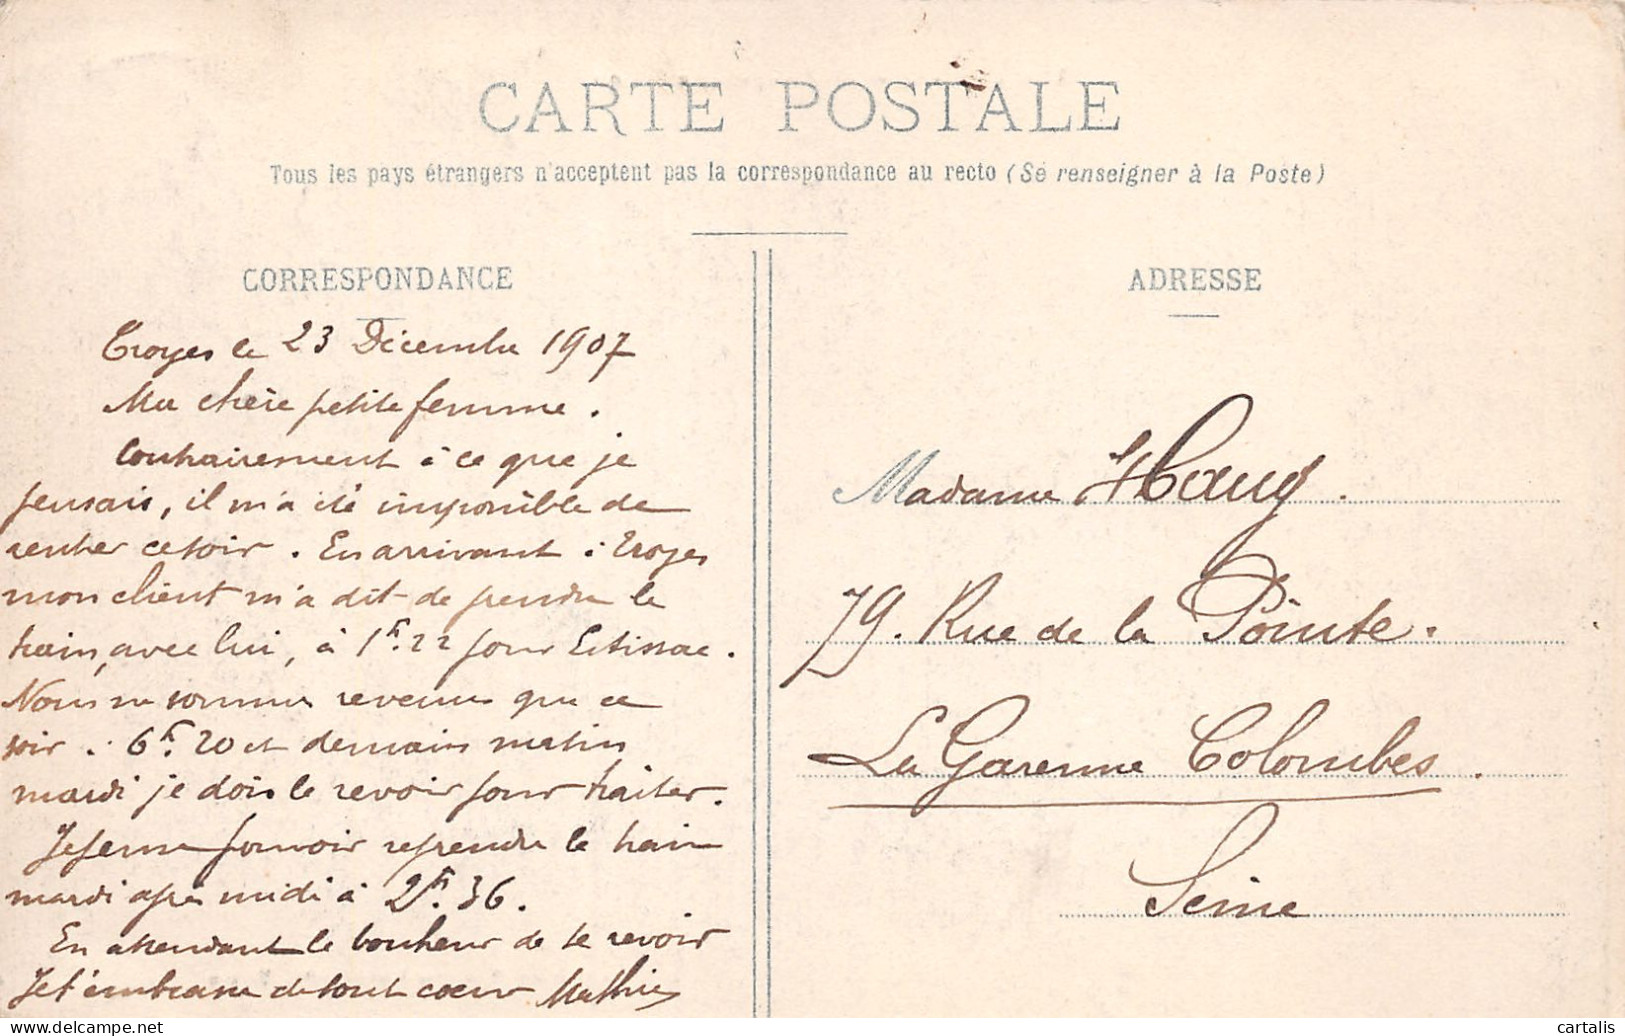 CARTE POSTALE
Tous les pays étrangers n'acceptent pas la correspondance au recto (Se renseigner à la Poste)
CORRESPONDANCE
Troyes le 23 Décembre 1907
Ma chère petite femme.
Contrairement à ce que je
pensais, il m'a été impossible de
rentrer ce soir. En arrivant à Troyes
mon client m'a dit de prendre le
train, avec lui, à 1h.22 pour Estissac.
Nous ne sommes revenus que ce
soir à 6h.20 et demain matin
mardi je dois le revoir pour traiter.
Je pense pouvoir reprendre le train
mardi après midi à 2h.36.
En attendant le bonheur de te revoir
Je t'embrasse de tout coeur Mathieu
ADRESSE
Madame Haug.
79. Rue de la Pointe.
La Garenne Colombes.
Seine
delcampe.net
cartalis